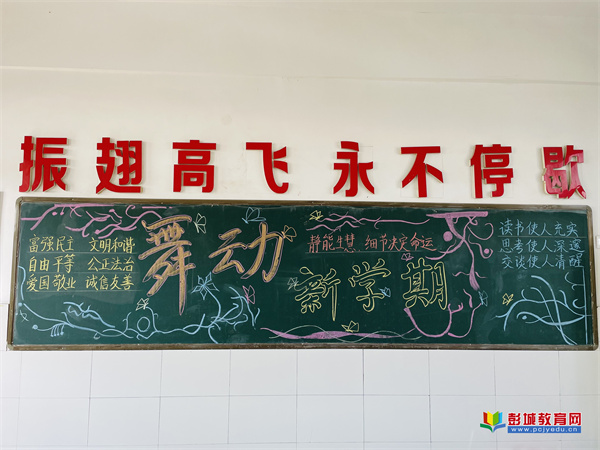 振翅高飞 永不停歇
富强民主 文明和谐
自由平等 公正法治
爱国敬业 诚信友善
舞动
静能生慧 细节决定命运
新学期
读书使人充实
思考使人深邃
交谈使人清醒
彭城教育网
www.pcjyedu.cn